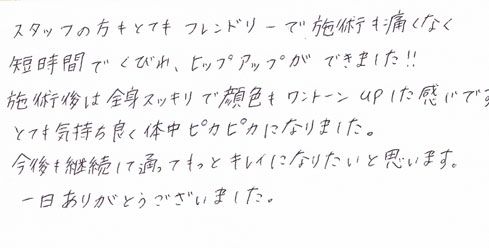 スタッフの方もとてもフレンドリーで施術も痛くなく
短時間でくびれ、ヒップアップができました!!
施術後は全身スッキリで顔色もワントーンupした感じです
とても気持ち良く体中ピカピカになりました。
今後も継続して通ってもっとキレイになりたいと思います。
一日ありがとうございました。